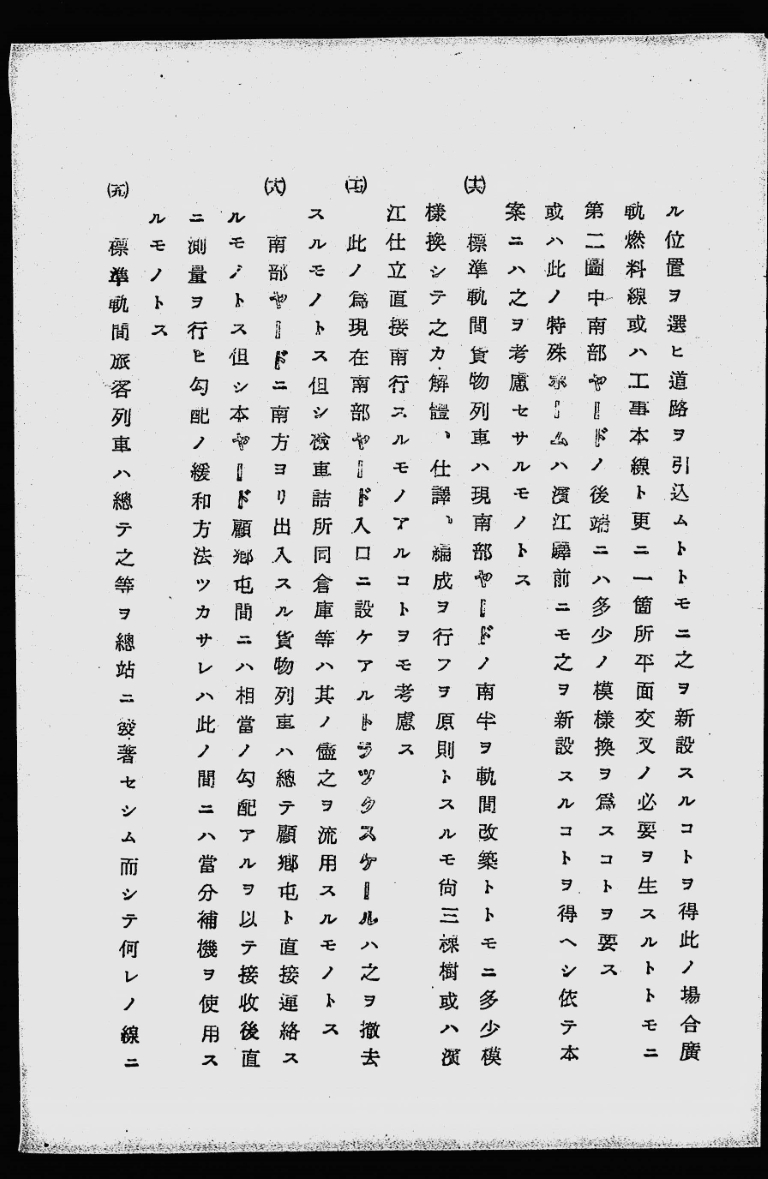 ル位置ヲ選ヒ道路ヲ引込ムトトモニ之ヲ新設スルコトヲ得此ノ場合廣
軌燃料線或ハ工事本線ト更ニ一箇所平面交叉ノ必要ヲ生スルトトモニ
第二圖中南部ヤードノ後端ニハ多少ノ模樣換ヲ爲スコトヲ要ス
或ハ此ノ特殊ホームハ濱江驛前ニモ之ヲ新設スルコトヲ得ヘシ依テ本
案ニハ之ヲ考慮セサルモノトス
(六) 標準軌間貨物列車ハ現南部ヤードノ南半ヲ軌間改築トトモニ多少模
樣換シテ之カ解體、仕譯、編成ヲ行フヲ原則トスルモ尙三棵樹或ハ濱
江仕立直接南行スルモノアルコトヲモ考慮ス
(七) 此ノ爲現在南部ヤード入口ニ設ケアルトラツクスケールハ之ヲ撤去
スルモノトス但シ檢車詰所同倉庫等ハ其ノ儘之ヲ流用スルモノトス
(八) 南部ヤードニ南方ヨリ出入スル貨物列車ハ總テ顧鄕屯ト直接連絡ス
ルモノトス但シ本ヤード顧鄕屯間ニハ相當ノ勾配アルヲ以テ接收後直
ニ測量ヲ行ヒ勾配ノ緩和方法ツカサレハ此ノ間ニハ當分補機ヲ使用ス
ルモノトス
(九) 標準軌間旅客列車ハ總テ之等ヲ總站ニ發著セシム而シテ何レノ線ニ